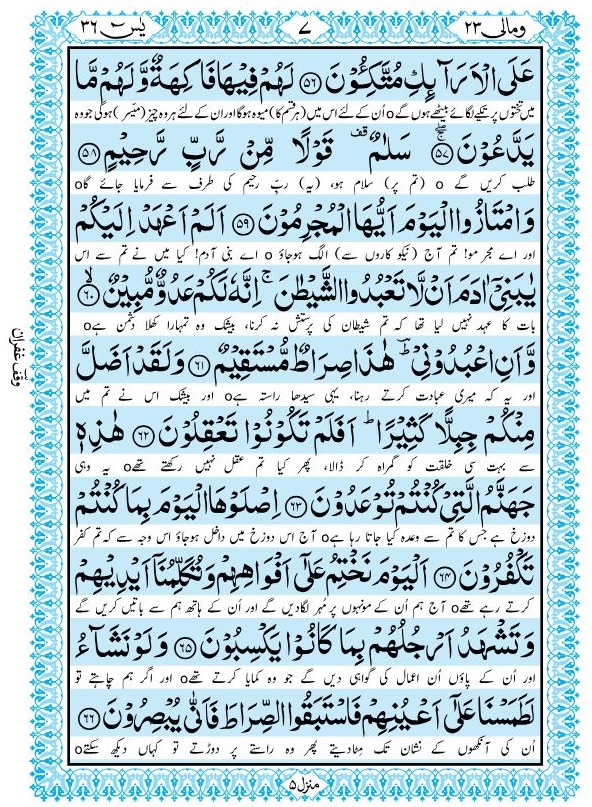 ومالی ۲۳
۷
یٰسٓ ۳۶
عَلَى الْاَرَآىِٕكِ مُتَّكِـُٔوْنَ ﴿۵۶﴾ لَهُمْ فِیْهَا فَاكِهَةٌ وَّ لَهُمْ مَّا
میں تختوں پر تکیے لگائے بیٹھے ہوں گے o اُن کے لئے اس میں (ہر قسم کا) میوہ ہوگا اور ان کے لئے ہر وہ چیز (میسر) ہوگی جو وہ
یَدَّعُوْنَ ﴿۵۷﴾ سَلٰمٌ قف قَوْلًا مِّنْ رَّبٍّ رَّحِیْمٍ ﴿۵۸﴾
طلب کریں گے o (تم پر) سلام ہو، (یہ) ربِّ رحیم کی طرف سے فرمایا جائے گا o
وَ امْتَازُوا الْیَوْمَ اَیُّهَا الْمُجْرِمُوْنَ ﴿۵۹﴾ اَلَمْ اَعْهَدْ اِلَیْكُمْ
اور اے مجرمو! تم آج (نیکو کاروں سے) الگ ہو جاؤ o اے بنی آدم! کیا میں نے تم سے اس
یٰبَنِیْۤ اٰدَمَ اَنْ لَّا تَعْبُدُوا الشَّیْطٰنَ ۚ اِنَّهٗ لَكُمْ عَدُوٌّ مُّبِیْنٌ ﴿۶۰﴾
بات کا عہد نہیں لیا تھا کہ تم شیطان کی پرستش نہ کرنا، بیشک وہ تمہارا کھلا دُشمن ہے o
وقف غفران
وَّ اَنِ اعْبُدُوْنِیْ ؕ هٰذَا صِرَاطٌ مُّسْتَقِیْمٌ ﴿۶۱﴾ وَ لَقَدْ اَضَلَّ
اور یہ کہ میری عبادت کرتے رہنا، یہی سیدھا راستہ ہے o اور بیشک اس نے تم میں
مِنْكُمْ جِبِلًّا كَثِیْرًا ؕ اَفَلَمْ تَكُوْنُوْا تَعْقِلُوْنَ ﴿۶۲﴾ هٰذِهٖ
سے بہت سی خلقت کو گمراہ کر ڈالا، پھر کیا تم عقل نہیں رکھتے تھے o یہ وہی
جَهَنَّمُ الَّتِیْ كُنْتُمْ تُوْعَدُوْنَ ﴿۶۳﴾ اِصْلَوْهَا الْیَوْمَ بِمَا كُنْتُمْ
دوزخ ہے جس کا تم سے وعدہ کیا جاتا رہا ہے o آج اس دوزخ میں داخل ہو جاؤ اس وجہ سے کہ تم کفر
تَكْفُرُوْنَ ﴿۶۴﴾ اَلْیَوْمَ نَخْتِمُ عَلٰۤى اَفْوَاهِهِمْ وَ تُكَلِّمُنَاۤ اَیْدِیْهِمْ
کرتے رہے تھے o آج ہم اُن کے مونہوں پر مُہر لگا دیں گے اور اُن کے ہاتھ ہم سے باتیں کریں گے
وَ تَشْهَدُ اَرْجُلُهُمْ بِمَا كَانُوْا یَكْسِبُوْنَ ﴿۶۵﴾ وَ لَوْ نَشَآءُ
اور اُن کے پاؤں اُن اعمال کی گواہی دیں گے جو وہ کمایا کرتے تھے o اور اگر ہم چاہتے تو
لَطَمَسْنَا عَلٰۤى اَعْیُنِهِمْ فَاسْتَبَقُوا الصِّرَاطَ فَاَنّٰى یُبْصِرُوْنَ ﴿۶۶﴾
اُن کی آنکھوں کے نشان تک مِٹا دیتے پھر وہ راستے پر دوڑتے تو کہاں دیکھ سکتے o
منزل ۵